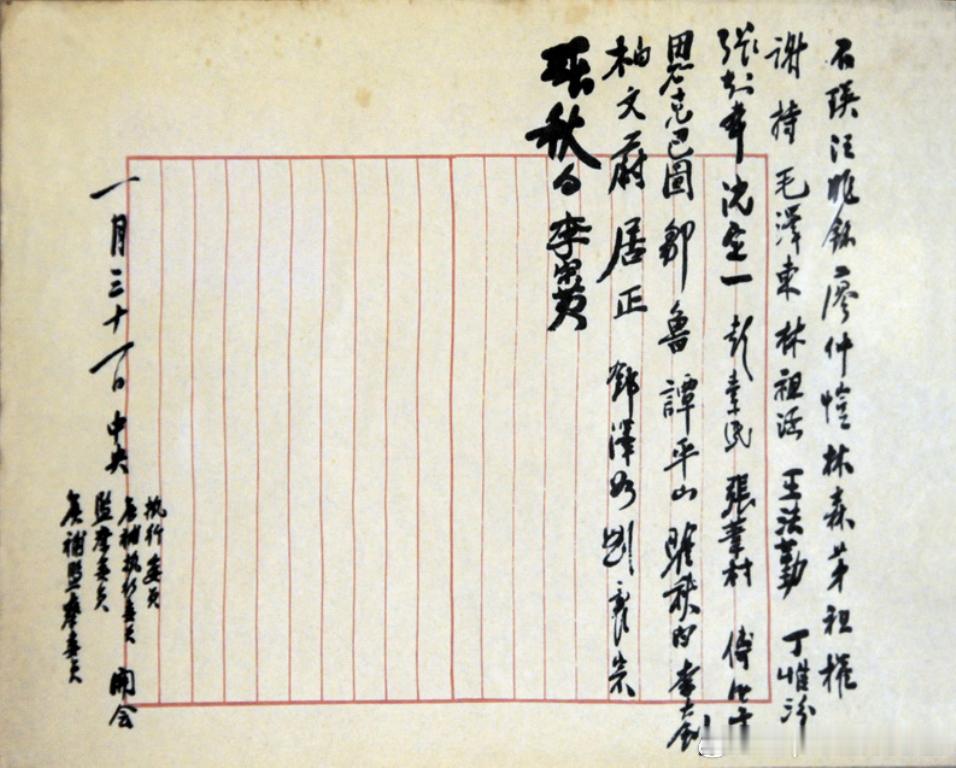 石瑛 汪兆銘 廖仲愷 林森 茅祖權
謝持 毛澤東 林祖涵 王法勤 丁惟汾
張 沈定一 彭素民 張葦村 傅汝霖
恩克巴圖 鄒魯 譚平山 瞿秋白 李大釗
柏文蔚 居正 鄧澤如 劉
張秋白 李宗黃
一月三十一日中央
执行委員
候補执行委員
監察委員
候補監察委員
開会